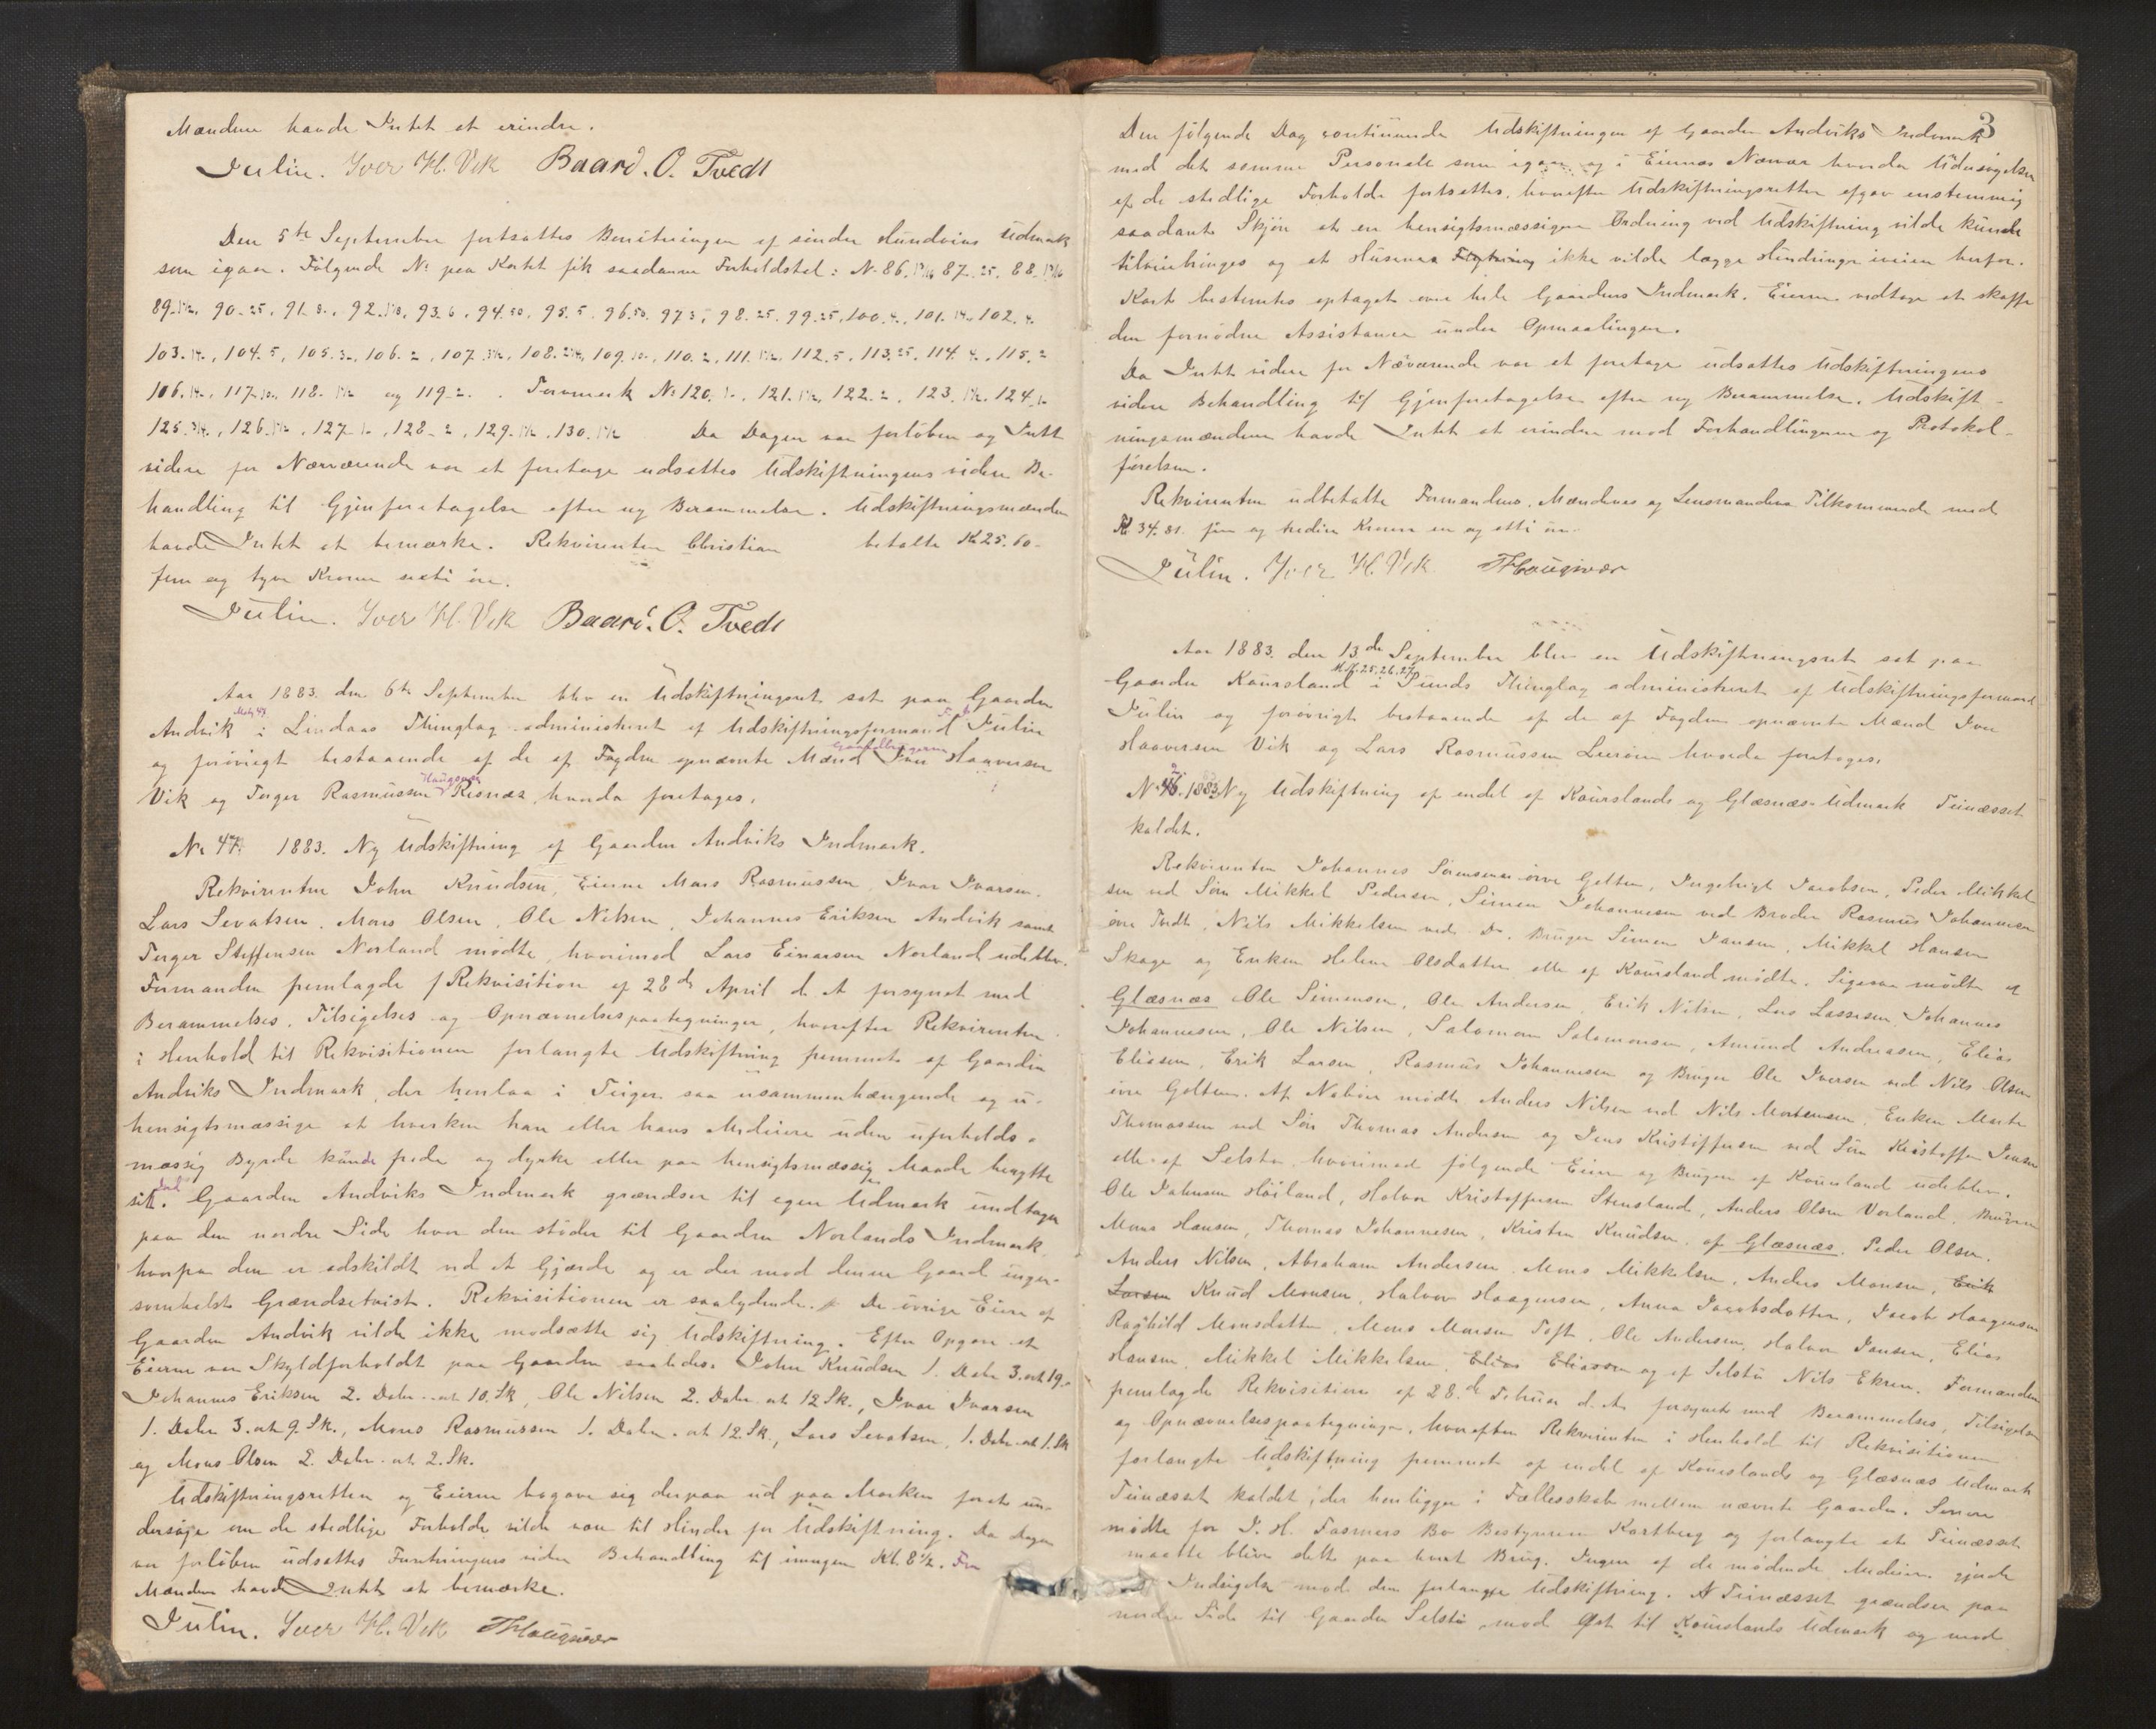 Mændene havde Intet at erindre.
Julin. Iver H. Vik Baard. O. Tvedt
Den 5te September fortsattes Boniteringen af søndre Hundvins Udmark
som igaar. Følgende No paa Kartet fik saadanne Forholdstal: No 86. 87. 25. 88.
89. 90. 25, 91. 8., 92. 93. 6, 94. 50, 95. 5. 96. 50. 97 5, 98. 25. 99. 25, 100. 4., 101. 102. 4.
103. 104. 5, 105. 106. 2, 107. 108. 109. 110. 2, 111. 112. 5, 113. 25. 114. 4., 115. 2
106. 117. 118. og 119. 2. Torvmark No 120. 121. 122. 2. 123. 124.
125. 126. 127. 128. 2, 129. 130. Da Dagen var forløben og Intet
videre for Nærværende var at foretage udsattes Udskiftningens videre Be-
handling til Gjenforetagelse efter ny Berammelse. Udskiftningsmændene
havde Intet at bemærke. Rekvirenten Christian betalte Kr 25.60.
fem og tyve Kroner sexti øre.
Julin. Iver H. Vik Baard. O. Tvedt
Aar 1883. den 6te September blev en Udskiftningsret sat paa Gaarden
Andvik i Lindaas Thinglag administreret af Udskiftningsformand Julin
og forøvrigt bestaaende af de af Fogden opnævnte Mænd Iver Haaversen
Vik og Torger Rasmussen Haugsvær Risnæs, hvorda foretages.
No 47. 1883. Ny Udskiftning af Gaarden Andviks Indmark.
Rekvirenten John Knudsen, Eierne Mons Rasmussen, Ivar Ivarsen,
Lars Sevatsen, Mons Olsen, Ole Nilsen, Johannes Eriksen Andvik samt
Torger Steffensen Norland mødte, hvorimod Lars Einarsen Norland udeblev.
Formanden fremlagde Rekvisition af 28de April d. A forsynet med
Berammelses, Tilsigelses og Opnævnelsespaategninger, hvorefter Rekvirenten
i Henhold til Rekvisitionen forlangte Udskiftning fremmet af Gaarden
Andviks Indmark, der henlaa i Teiger saa usammenhængende og u-
hensigtsmæssige at hverken han eller hans Medeiere uden uforholds-
mæssig Byrde kunde frede og dyrke eller paa hensigtsmæssig Maade benytte
sit. Gaarden Andviks Indmark grændser til egen Udmark undtagen
paa den nordre Side hvor den støder til Gaarden Norlands Indmark
hvorfra den er adskildt ved et Gjærde og er der mod denne Gaard ingen-
somhelst Grændsetvist. Rekvisitionen er saalydende. De øvrige Eiere af
Gaarden Andvik vilde ikke modsætte sig Udskiftning. Efter Opgave at
Eierne var Skyldforholdt paa Gaarden saaledes: John Knudsen 1. Daler 3. ort 19.
Johannes Eriksen 2. Daler - ort 10. Sk, Ole Nilsen 2. Daler - ort 12 Sk., Ivar Ivarsen
1. Daler 3. ort 9. Sk., Mons Rasmussen 1. Daler - ort 12. Sk., Lars Sevatsen, 1. Daler - ort 1. Sk
og Mons Olsen 2. Daler - ort 2. Sk.
Udskiftningsretten og Eierne begave sig derpaa ud paa Marken for at un-
dersøge om de stedlige Forholde vilde være til Hinder for Udskiftning. Da Dagen
var forløben udsattes Forretningens videre Behandling til imorgen Kl. 8 1/2.
Mændene havde Intet at bemærke.
Julin. Iver H. Vik THaugsvær
3
Den følgende Dag continuerede Udskiftningen af Gaarden Andviks Indmark
med det samme Personale som igaar og i Eiernes Nærvær hvorda Undersøgelsen
af de stedlige Forholde fortsattes, hvorefter Udskiftningsretten afgav enstemmig
saadant Skjøn at en hensigtsmæssigere Ordning ved Udskiftning vilde kunde
tilveiebringes og at Husenes Flytning ikke vilde lægge Hindringer iveien herfor.
Kart bestemtes optaget over hele Gaardens Indmark. Eierne vedtog at skaffe
den fornødne Assistance under Opmaalingen.
Da Intet videre for Nærværende var at foretage udsattes Udskiftningens
videre Behandling til Gjenforetagelse efter ny Berammelse. Udskift-
ningsmændene havde Intet at erindre mod Forhandlingerne og Protokol-
førelsen.
Rekvirenten udbetalte Formandens, Mændenes og Lensmandens Tilkommende med
Kr. 34.81. fire og tredive Kroner en og otti øre.
Julin. Iver H. Vik THaugsvær
Aar 1883. den 13de September blev en Udskiftningsret sat paa
Gaarden Kausland M. No. 25, 26, 27 i Sunds Thinglag administreret af Udskiftningsformand
Julin og forøvrigt bestaaende af de af Fogden opnævnte Mænd Iver
Haaversen Vik og Lars Rasmussen Lerøen hvorda foretoges.
No 46. 1883. Ny Udskiftning af endel af Kauslands og Glæsnæs Udmark Teinæsset
kaldet.
Rekvirenten Johannes Sørensen øvre Golten, Ingebrigt Jacobsen, Peder Mikkel-
sen ved Søn Mikkel Pedersen, Simen Johannesen ved Broder Rasmus Johannesen
øvre Tvedt, Nils Mikkelsen ved Do. Bruger Simen Jansen, Mikkel Hansen
Skage og Enken Helene Olsdatter alle af Kausland mødte. Ligesaa mødte af
Glæsnæs Ole Simensen, Ole Andersen, Erik Nilsen, Lars Lassesen, Johannes
Johannesen, Ole Nilsen, Salomon Salomonsen, Amund Andreasen, Elias
Eliasen, Erik Larsen, Rasmus Johannesen og Bruger Ole Iversen ved Nils Olsen
øvre Golten. Af Naboer mødte Anders Nilsen ved Nils Mortensen, Enken Marte
Thomassen ved Søn Thomas Andersen og Jens Kristoffersen ved Søn Kristoffer Jensen
alle af Selstø, hvorimod følgende Eiere og Brugere af Kausland udeblev.
Ole Johnsen Høiland, Halvor Kristoffersen Steinsland, Anders Olsen Vorland, Brugerne
Mons Hansen, Thomas Johannesen, Kristen Knudsen, af Glæsnæs. Peder Olsen,
Anders Nilsen, Abraham Andersen, Mons Mikkelsen, Anders Monsen, Erik
Larsen Knud Monsen, Halvor Haagensen, Anna Jacobsdatter, Jacob Haagensen
Raghild Monsdatter, Mons Monsen Toft, Ole Andersen, Halvor Jansen, Elias
Hansen, Mikkel Mikkelsen, Elias Eliassen og af Selstø Nils Ekren. Formanden
fremlagde Rekvisition af 28.de Februar d. A. forsynet med Berammelses, Tilsigelses
og Opnævnelsespaategninger, hvorefter Rekvirenten i Henhold til Rekvisitionen
forlangte Udskiftning fremmet af endel af Kauslands og Glæsnæs Udmark
Teinæsset kaldet, der henligger i Fællesskab mellem nævnte Gaarde. Senere
mødte for J. H. Fasmers Bo Bestyreren Kartberg og forlangte at Teinæsset
maatte blive delt paa hvert Brug. Ingen af de mødende Medeiere gjorde
Indsigelse mod den forlangte Udskiftning. Teinæsset grændser paa
nordre Side til Gaarden Selstø, mod Øst til Kauslands Udmark og mod